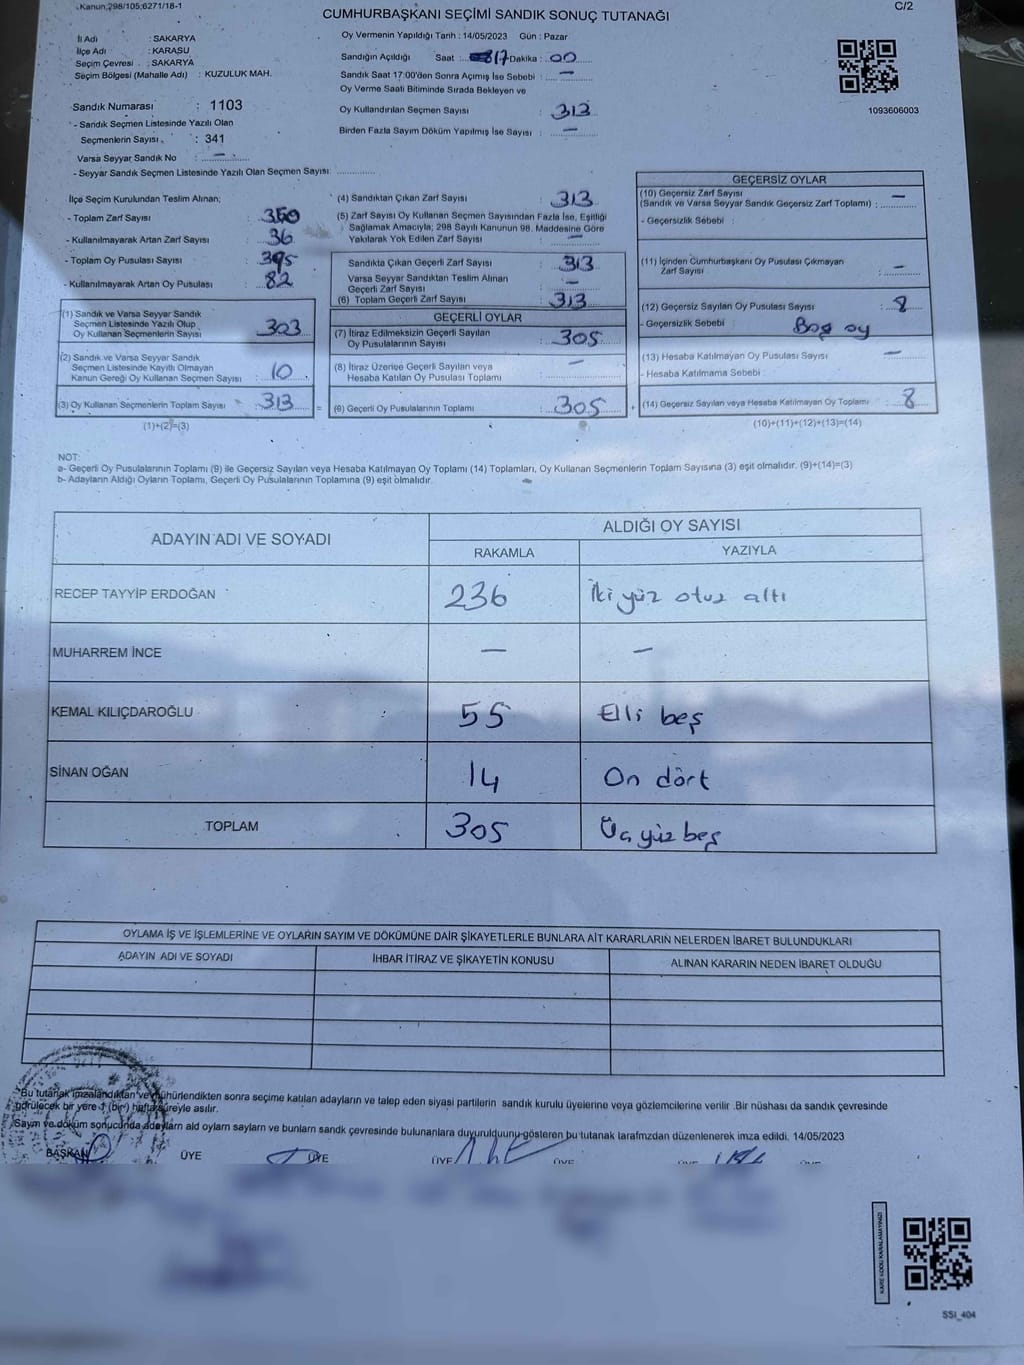 Kanun;298/105;6271/18-1
C/2
CUMHURBAŞKANI SEÇİMİ SANDIK SONUÇ TUTANAĞI
İl Adı : SAKARYA
İlçe Adı : KARASU
Seçim Çevresi : SAKARYA
Seçim Bölgesi (Mahalle Adı) : KUZULUK MAH.
Sandık Numarası : 1103
- Sandık Seçmen Listesinde Yazılı Olan
Seçmenlerin Sayısı : 341
Varsa Seyyar Sandık No : —
- Seyyar Sandık Seçmen Listesinde Yazılı Olan Seçmen Sayısı:
Oy Vermenin Yapıldığı Tarih : 14/05/2023 Gün : Pazar
Sandığın Açıldığı Saat : 17 Dakika : 00
Sandık Saat 17:00'den Sonra Açımış İse Sebebi : —
Oy Verme Saati Bitiminde Sırada Bekleyen ve
Oy Kullandırılan Seçmen Sayısı : 313
Birden Fazla Sayım Döküm Yapılmış İse Sayısı : —
1093606003
İlçe Seçim Kurulundan Teslim Alınan;
- Toplam Zarf Sayısı : 350
- Kullanılmayarak Artan Zarf Sayısı : 36
- Toplam Oy Pusulası Sayısı : 395
- Kullanılmayarak Artan Oy Pusulası : 82
(1) Sandık ve Varsa Seyyar Sandık
Seçmen Listesinde Yazılı Olup
Oy Kullanan Seçmenlerin Sayısı : 303
(2) Sandık ve Varsa Seyyar Sandık
Seçmen Listesinde Kayıtlı Olmayan
Kanun Gereği Oy Kullanan Seçmen Sayısı : 10
(3) Oy Kullanan Seçmenlerin Toplam Sayısı : 313 =
(1)+(2)=(3)
(4) Sandıktan Çıkan Zarf Sayısı : 313
(5) Zarf Sayısı Oy Kullanan Seçmen Sayısından Fazla İse, Eşitliği
Sağlamak Amacıyla; 298 Sayılı Kanunun 98. Maddesine Göre
Yakılarak Yok Edilen Zarf Sayısı : —
Sandıkta Çıkan Geçerli Zarf Sayısı : 313
Varsa Seyyar Sandıktan Teslim Alınan
Geçerli Zarf Sayısı : —
(6) Toplam Geçerli Zarf Sayısı : 313
GEÇERLİ OYLAR
(7) İtiraz Edilmeksizin Geçerli Sayılan
Oy Pusulalarının Sayısı : 305
(8) İtiraz Üzerine Geçerli Sayılan veya
Hesaba Katılan Oy Pusulası Toplamı : —
(9) Geçerli Oy Pusulalarının Toplamı : 305 +
GEÇERSİZ OYLAR
(10) Geçersiz Zarf Sayısı
(Sandık ve Varsa Seyyar Sandık Geçersiz Zarf Toplamı) : —
- Geçersizlik Sebebi :
(11) İçinden Cumhurbaşkanı Oy Pusulası Çıkmayan
Zarf Sayısı : —
(12) Geçersiz Sayılan Oy Pusulası Sayısı : 8
- Geçersizlik Sebebi : Boş oy
(13) Hesaba Katılmayan Oy Pusulası Sayısı : —
- Hesaba Katılmama Sebebi :
(14) Geçersiz Sayılan veya Hesaba Katılmayan Oy Toplamı : 8
(10)+(11)+(12)+(13)=(14)
NOT:
a- Geçerli Oy Pusulalarının Toplamı (9) ile Geçersiz Sayılan veya Hesaba Katılmayan Oy Toplamı (14) Toplamları, Oy Kullanan Seçmenlerin Toplam Sayısına (3) eşit olmalıdır. (9)+(14)=(3)
b- Adayların Aldığı Oyların Toplamı, Geçerli Oy Pusulalarının Toplamına (9) eşit olmalıdır.
ADAYIN ADI VE SOYADI
ALDIĞI OY SAYISI
RAKAMLA YAZIYLA
RECEP TAYYİP ERDOĞAN 236 İki yüz otuz altı
MUHARREM İNCE — —
KEMAL KILIÇDAROĞLU 55 Elli beş
SİNAN OĞAN 14 On dört
TOPLAM 305 Üç yüz beş
OYLAMA İŞ VE İŞLEMLERİNE VE OYLARIN SAYIM VE DÖKÜMÜNE DAİR ŞİKAYETLERLE BUNLARA AİT KARARLARIN NELERDEN İBARET BULUNDUKLARI
ADAYIN ADI VE SOYADI İHBAR İTİRAZ VE ŞİKAYETİN KONUSU ALINAN KARARIN NEDEN İBARET OLDUĞU
"Bu tutanak imzalandıktan ve mühürlendikten sonra seçime katılan adayların ve talep eden siyasi partilerin sandık kurulu üyelerine veya gözlemcilerine verilir .Bir nüshası da sandık çevresinde
görülecek bir yere 1 (bir) hafta süreyle asılır.
Sayım ve döküm sonucunda adayların ald oylarn saylarn ve bunlarn sandk çevresinde bulunanlara duyurulduunu gösteren bu tutanak tarafmzdan düzenlenerek imza edildi. 14/05/2023
BAŞKAN ÜYE ÜYE ÜYE ÜYE ÜYE ÜYE
KARE KODU KARALAMAYINIZ!
SSI_404